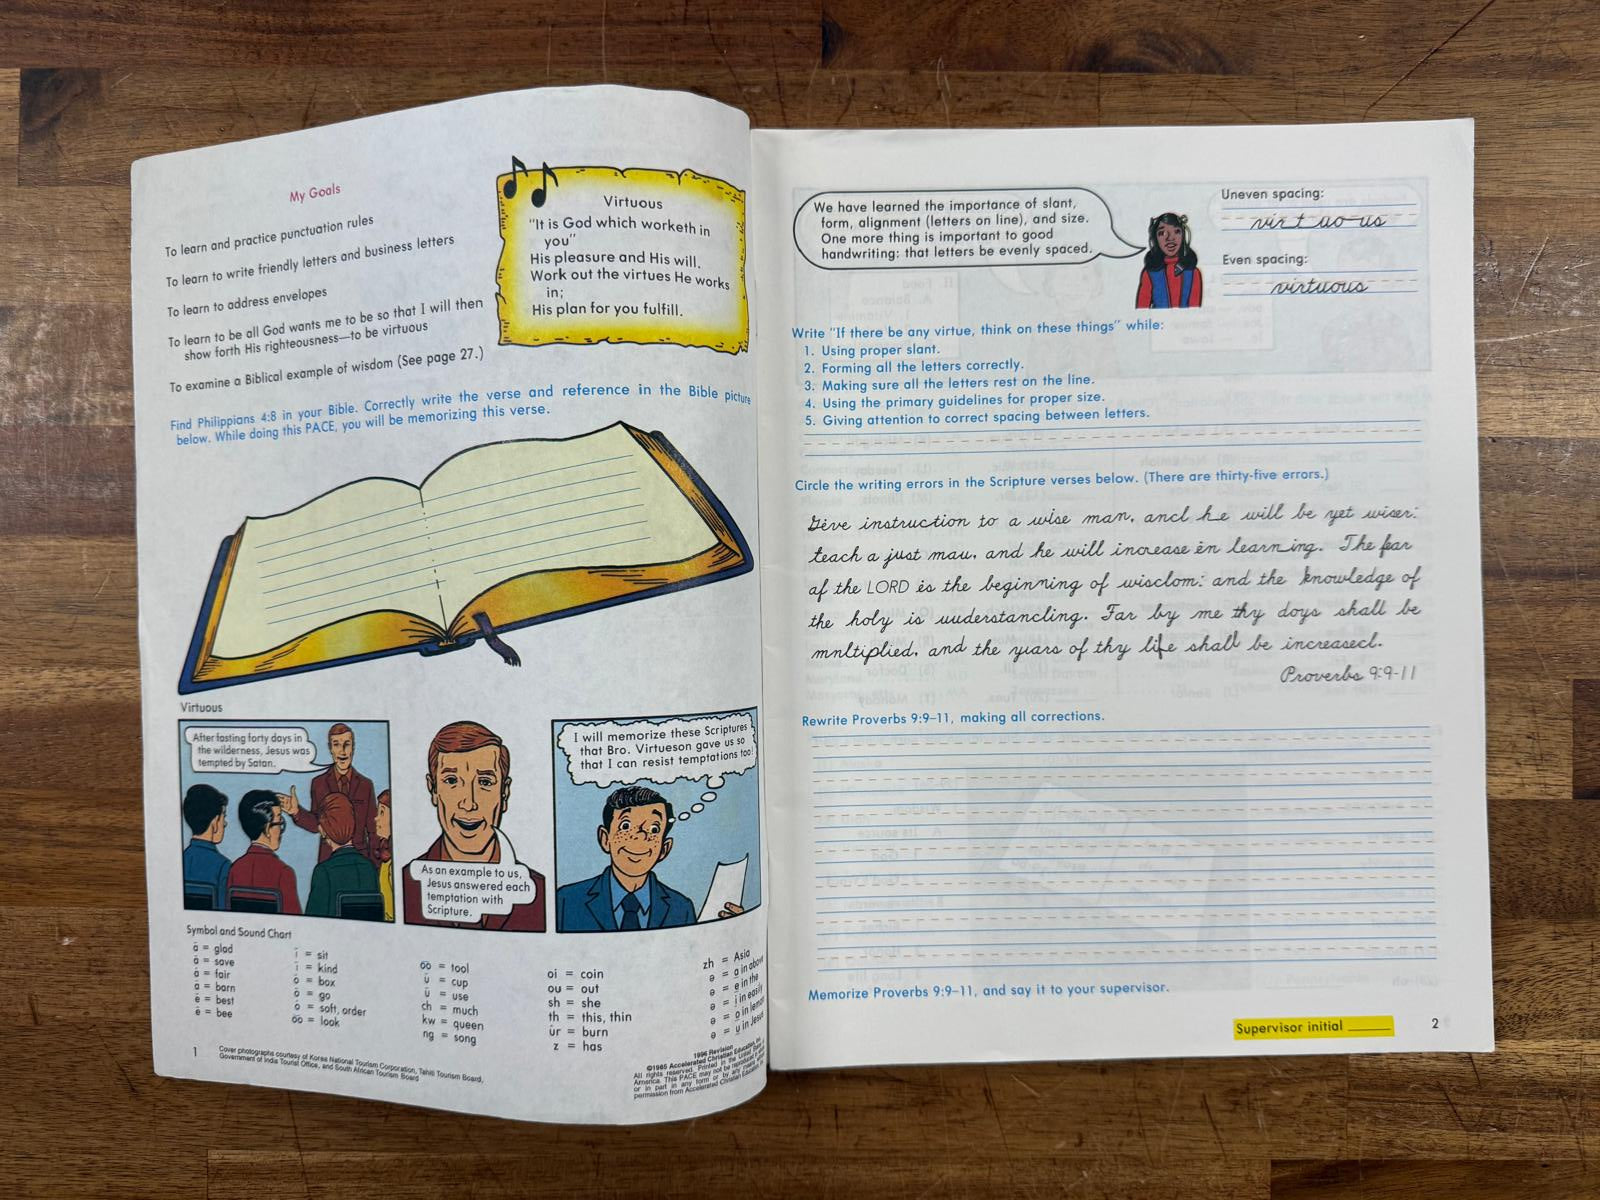 My Goals
To learn and practice punctuation rules
To learn to write friendly letters and business letters
To learn to address envelopes
To learn to be all God wants me to be so that I will then
show forth His righteousness—to be virtuous
To examine a Biblical example of wisdom (See page 27.)
Virtuous
"It is God which worketh in
you"
His pleasure and His will.
Work out the virtues He works
in;
His plan for you fulfill.
Find Philippians 4:8 in your Bible. Correctly write the verse and reference in the Bible picture
below. While doing this PACE, you will be memorizing this verse.
Virtuous
After fasting forty days in
the wilderness, Jesus was
tempted by Satan.
As an example to us,
Jesus answered each
temptation with
Scripture.
I will memorize these Scriptures
that Bro. Virtueson gave us so
that I can resist temptations too!
Symbol and Sound Chart
ă = glad
ā = save
â = fair
ä = barn
ĕ = best
ē = bee
ĭ = sit
ī = kind
ŏ = box
ō = go
ô = soft, order
o͝o = look
o͞o = tool
ŭ = cup
ū = use
ch = much
kw = queen
ng = song
oi = coin
ou = out
sh = she
th = this, thin
ûr = burn
z = has
zh = Asia
ə = a in above
ə = e in the
ə = i in easily
ə = o in lemon
ə = u in Jesus
1
Cover photographs courtesy of Korea National Tourism Corporation, Tahiti Tourism Board,
Government of India Tourist Office, and South African Tourism Board
1996 Revision
©1985 Accelerated Christian Education,
All rights reserved. Printed in the United
America. This PACE may not be reproduced in
or in part in any form or by any means
permission from Accelerated Christian Education
We have learned the importance of slant,
form, alignment (letters on line), and size.
One more thing is important to good
handwriting: that letters be evenly spaced.
Uneven spacing:
virtuous
Even spacing:
virtuous
Write "If there be any virtue, think on these things" while:
1. Using proper slant.
2. Forming all the letters correctly.
3. Making sure all the letters rest on the line.
4. Using the primary guidelines for proper size.
5. Giving attention to correct spacing between letters.
Circle the writing errors in the Scripture verses below. (There are thirty-five errors.)
Geve instruction to a wise man, ancl he will be yet wiser:
teach a just mau, and he will increase en learning. The fear
af the LORD es the beginning of wisclom: and the knowledge of
the holy is uuderstancling. Far by me thy doys shall be
mnltiplied, and the years of thy life shall be increasecl.
Proverbs 9:9-11
Rewrite Proverbs 9:9–11, making all corrections.
Memorize Proverbs 9:9–11, and say it to your supervisor.
Supervisor initial ______
2